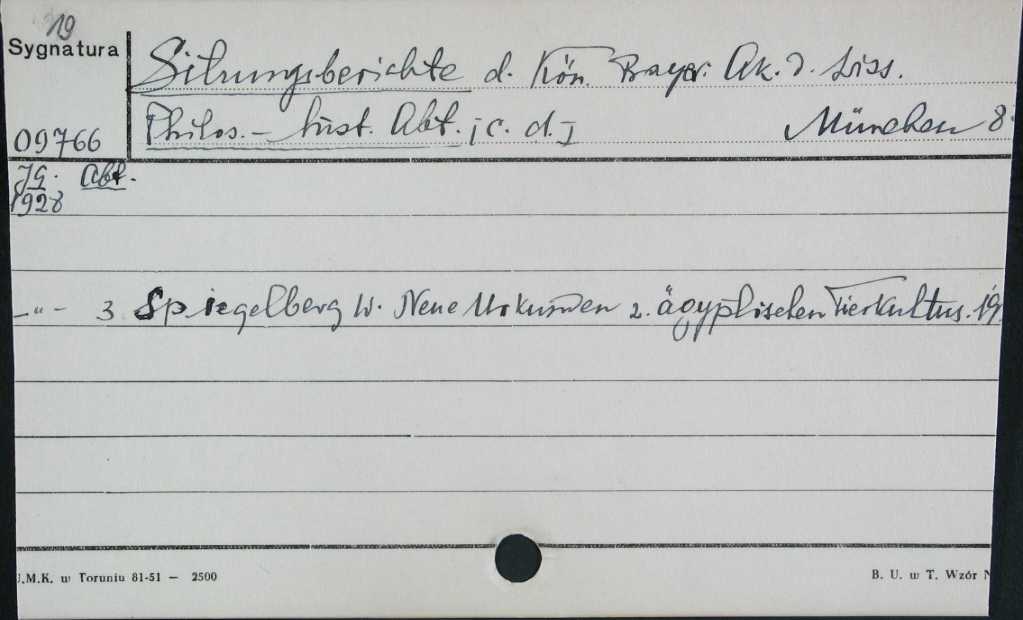 19
Sygnatura
Sitzungsberichte d. Kön. Bayer. Ak. d. Wiss.
09766
Philos. - hist. Abt. [c. d.] München 8°
JG. Abt.
1928
-"- 3 Spiegelberg W. Neue Urkunden z. ägyptischen Tierkultus. 19
U.M.K. w Toruniu 81-51 — 2500
B. U. w T. Wzór N